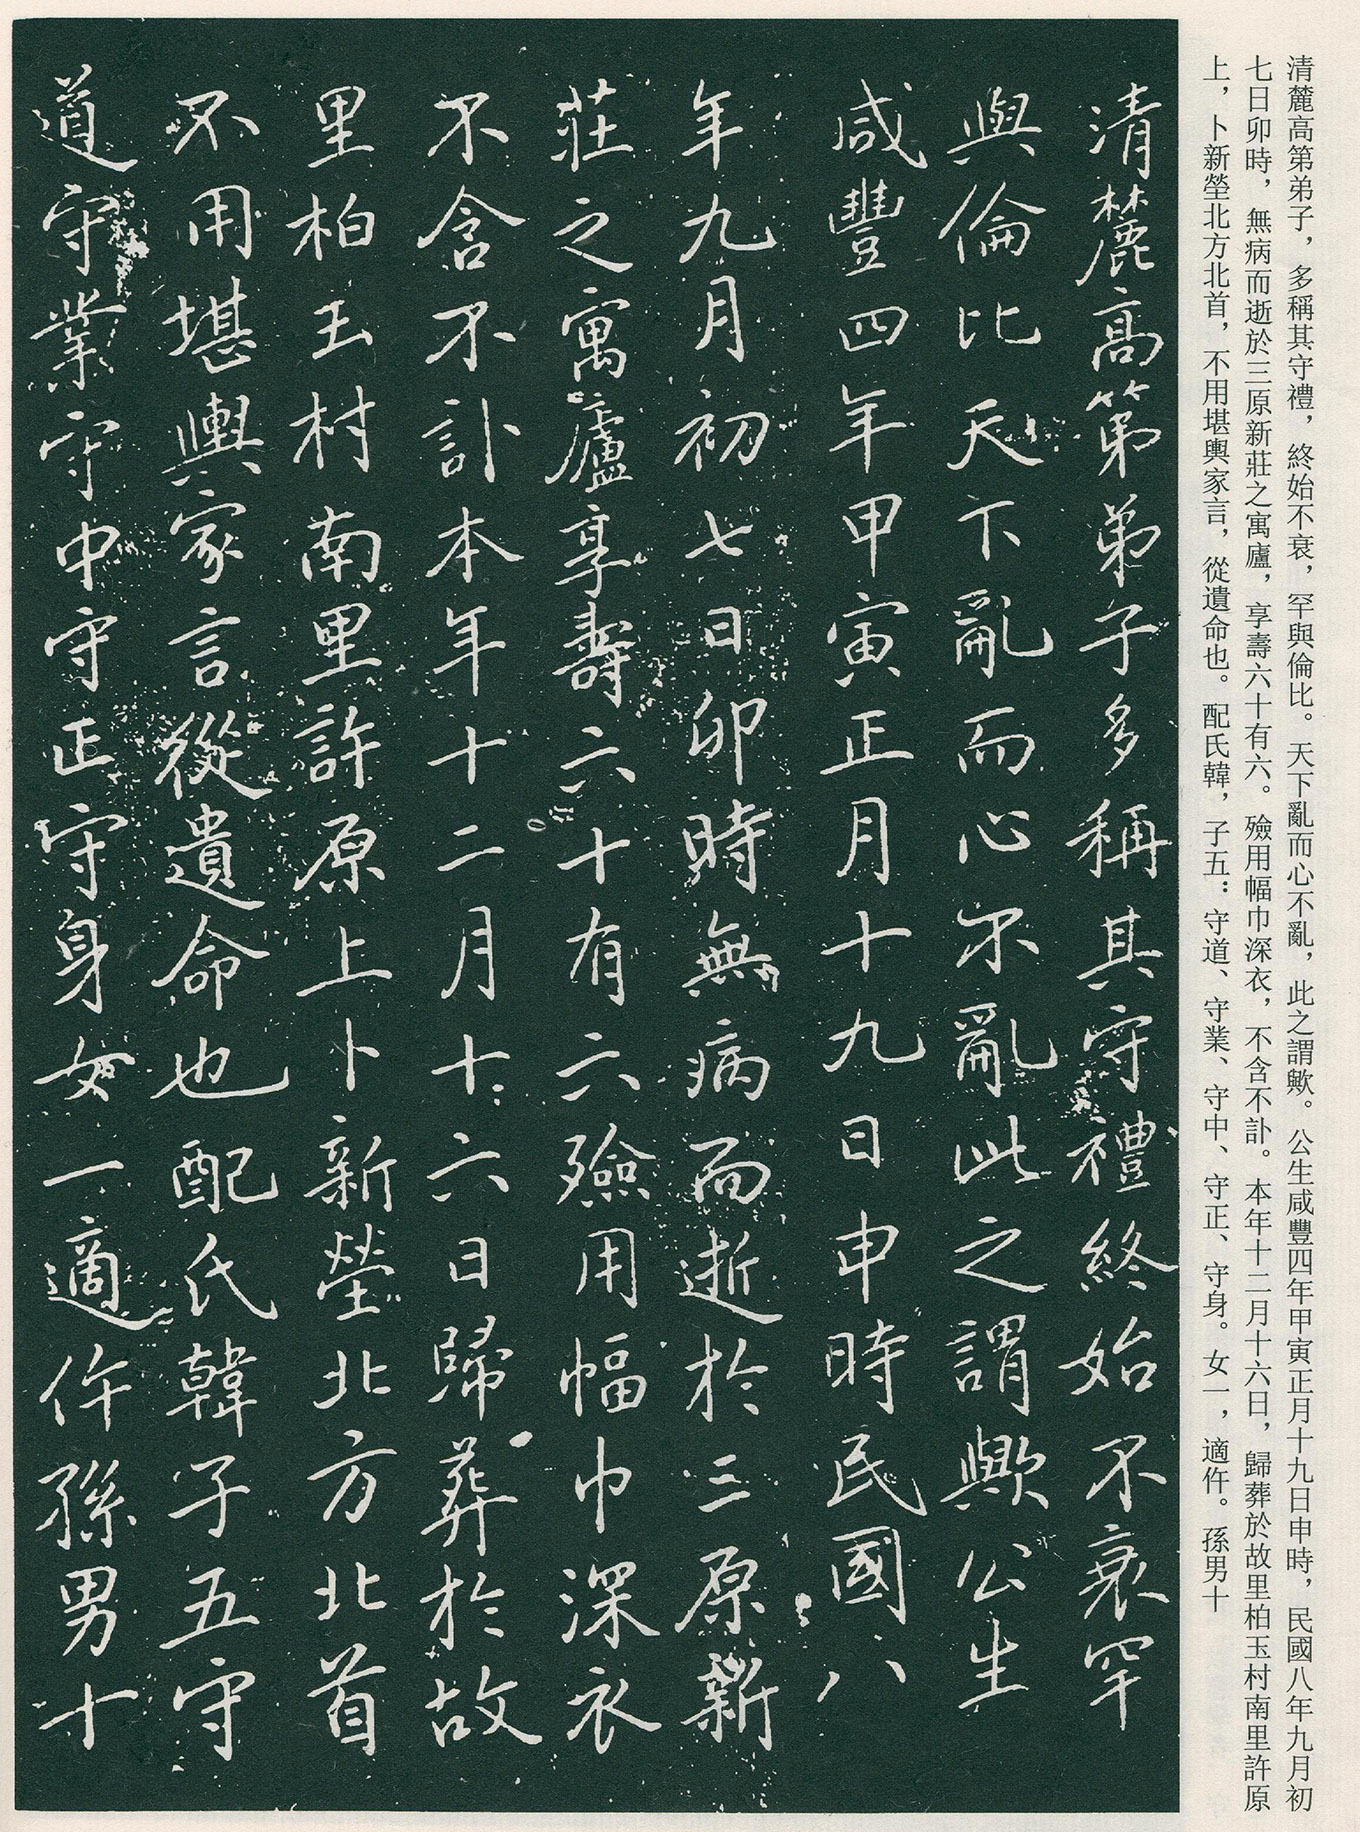 清麓高第弟子，多稱其守禮，終始不衰，罕與倫比。天下亂而心不亂，此之謂歟。公生咸豐四年甲寅正月十九日申時，民國八年九月初
七日卯時，無病而逝於三原新莊之寓廬，享壽六十有六。殮用幅巾深衣，不含不訃。本年十二月十六日，歸葬於故里柏玉村南里許原
上，卜新塋北方北首，不用堪輿家言，從遺命也。配氏韓，子五：守道、守業、守中、守正、守身。女一，適仵。孫男十
清麓高第弟子多稱其守禮終始不衰罕
與倫比天下亂而心不亂此之謂歟公生
咸豐四年甲寅正月十九日申時民國八
年九月初七日卯時無病而逝於三原新
莊之寓廬享壽六十有六殮用幅巾深衣
不含不訃本年十二月十六日歸葬於故
里柏玉村南里許原上卜新塋北方北首
不用堪輿家言從遺命也配氏韓子五守
道守業守中守正守身女一適仵孫男十